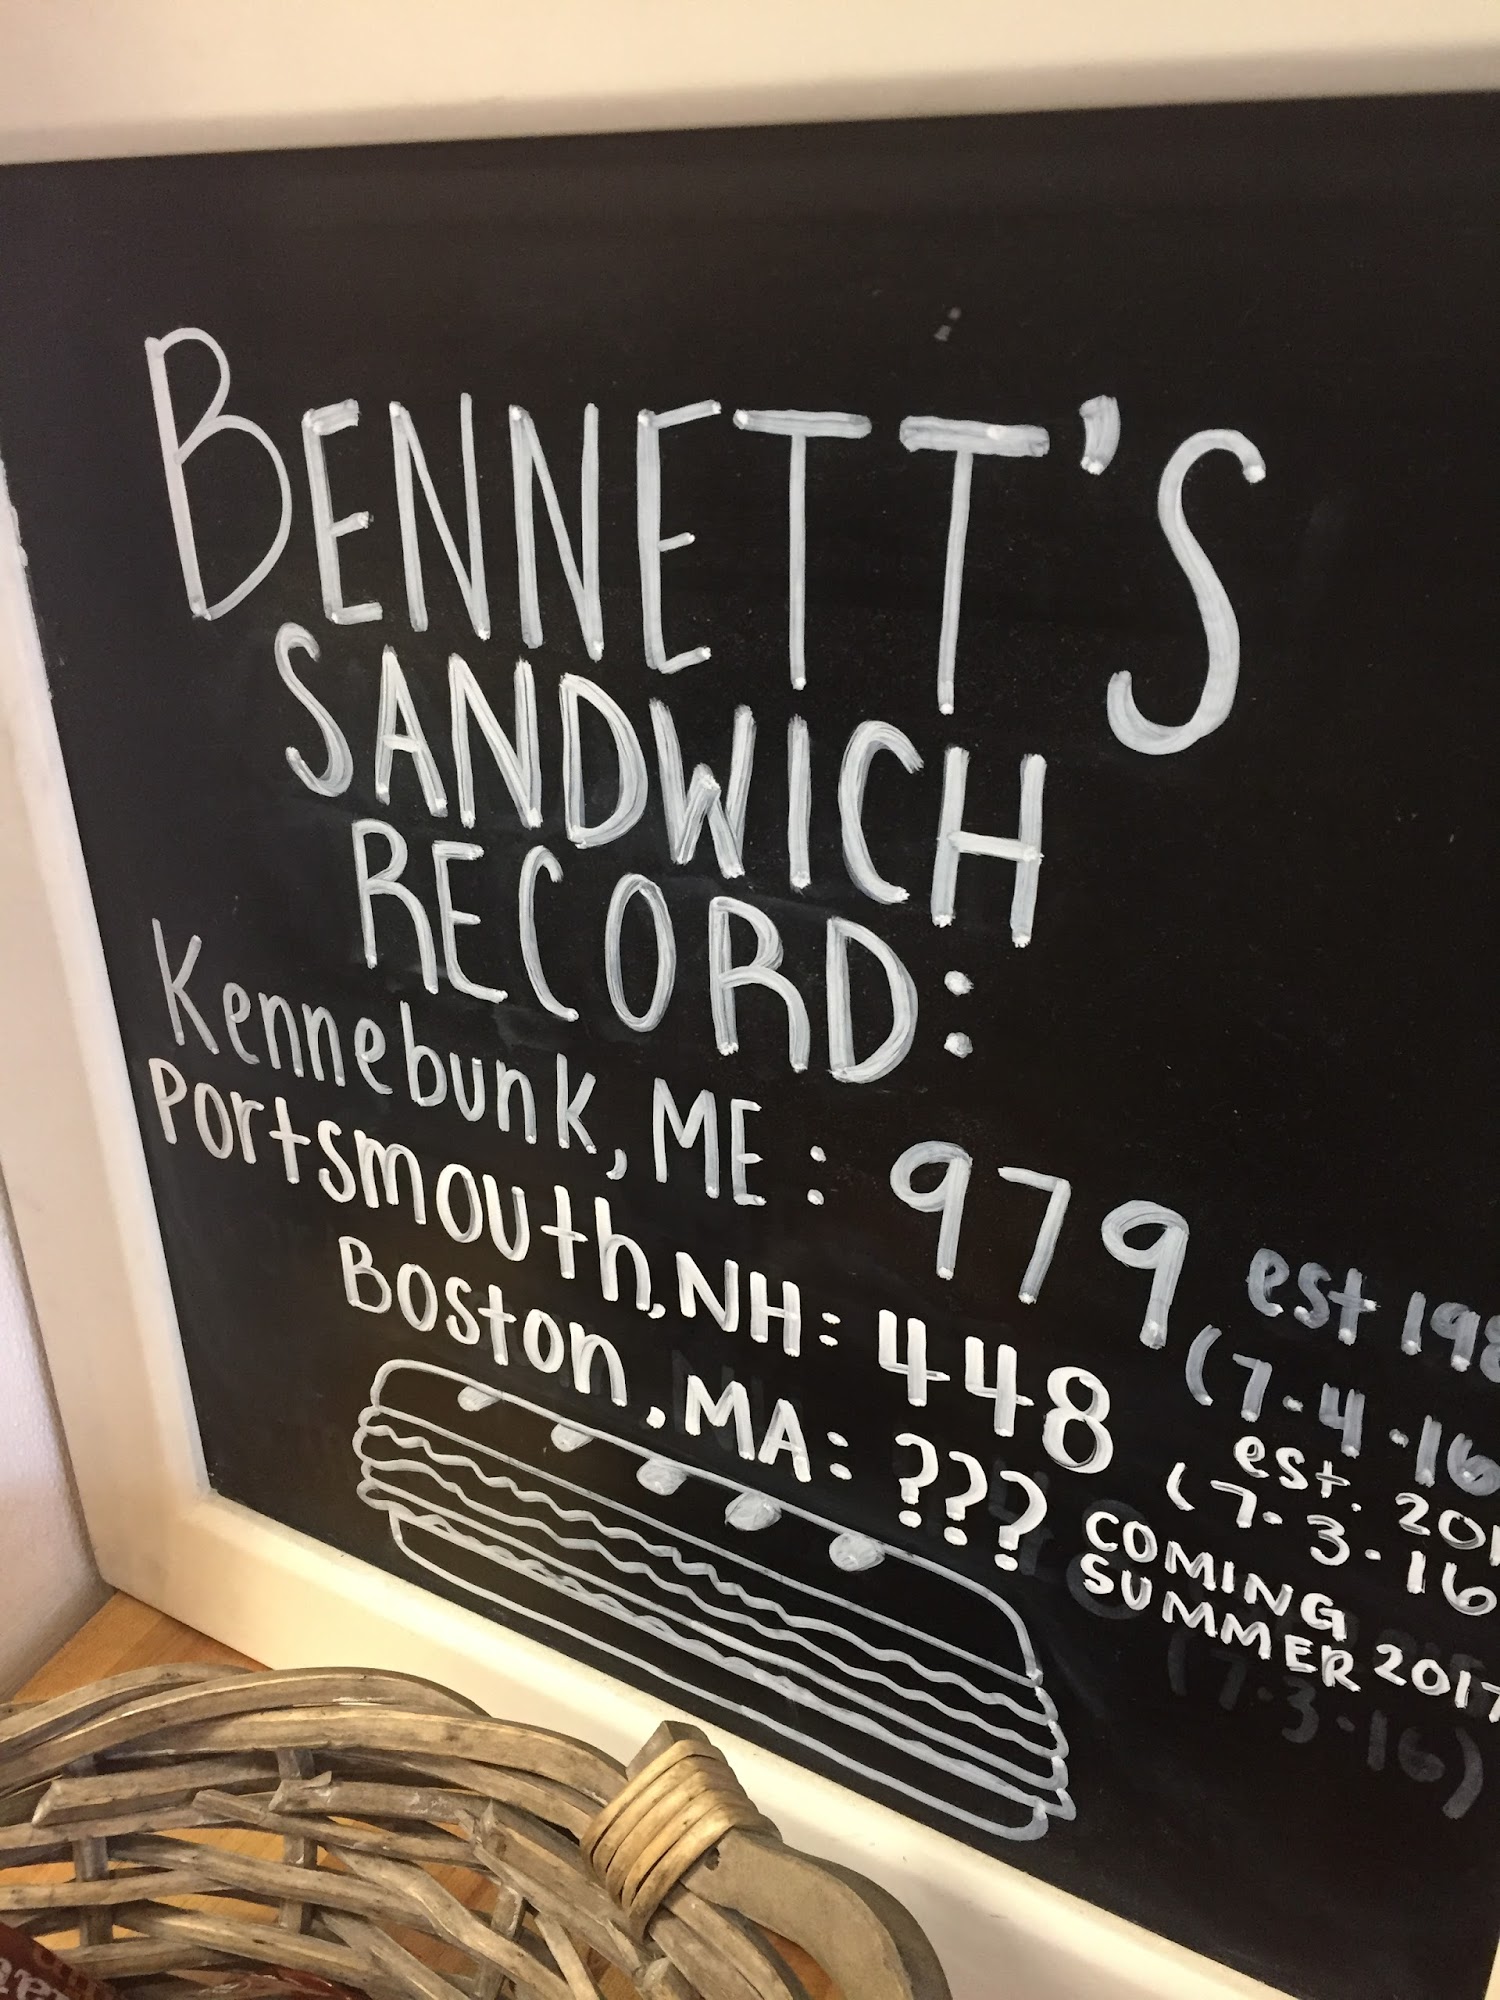 BENNETT'S
SANDWICH
RECORD:
Kennebunk, ME: 979 est 198
(7-4-16
Portsmouth, NH: 448 est. 201
(7-3-16
Boston, MA: ??? COMING
SUMMER 2017
(7-3-16)